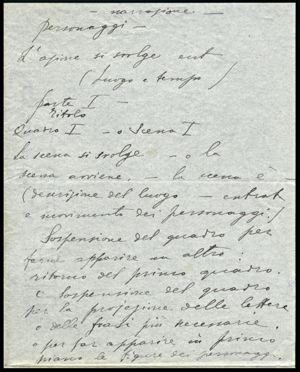 - narrazione -
personaggi -
L'azione si svolge
(luogo e tempo)
Parte I -
titolo
Quadro I - o Scena I
La scena si svolge - o la
scena avviene. - la scena è
(descrizione del luogo - entrat
e movimento dei personaggi.)
Sospensione del quadro per
farne apparire un altro:
ritorno del primo quadro.
e sospensione del quadro
per la proiezione delle lettere
o delle frasi più necessarie.
o per far apparire in primo
piano le figure dei personagg.